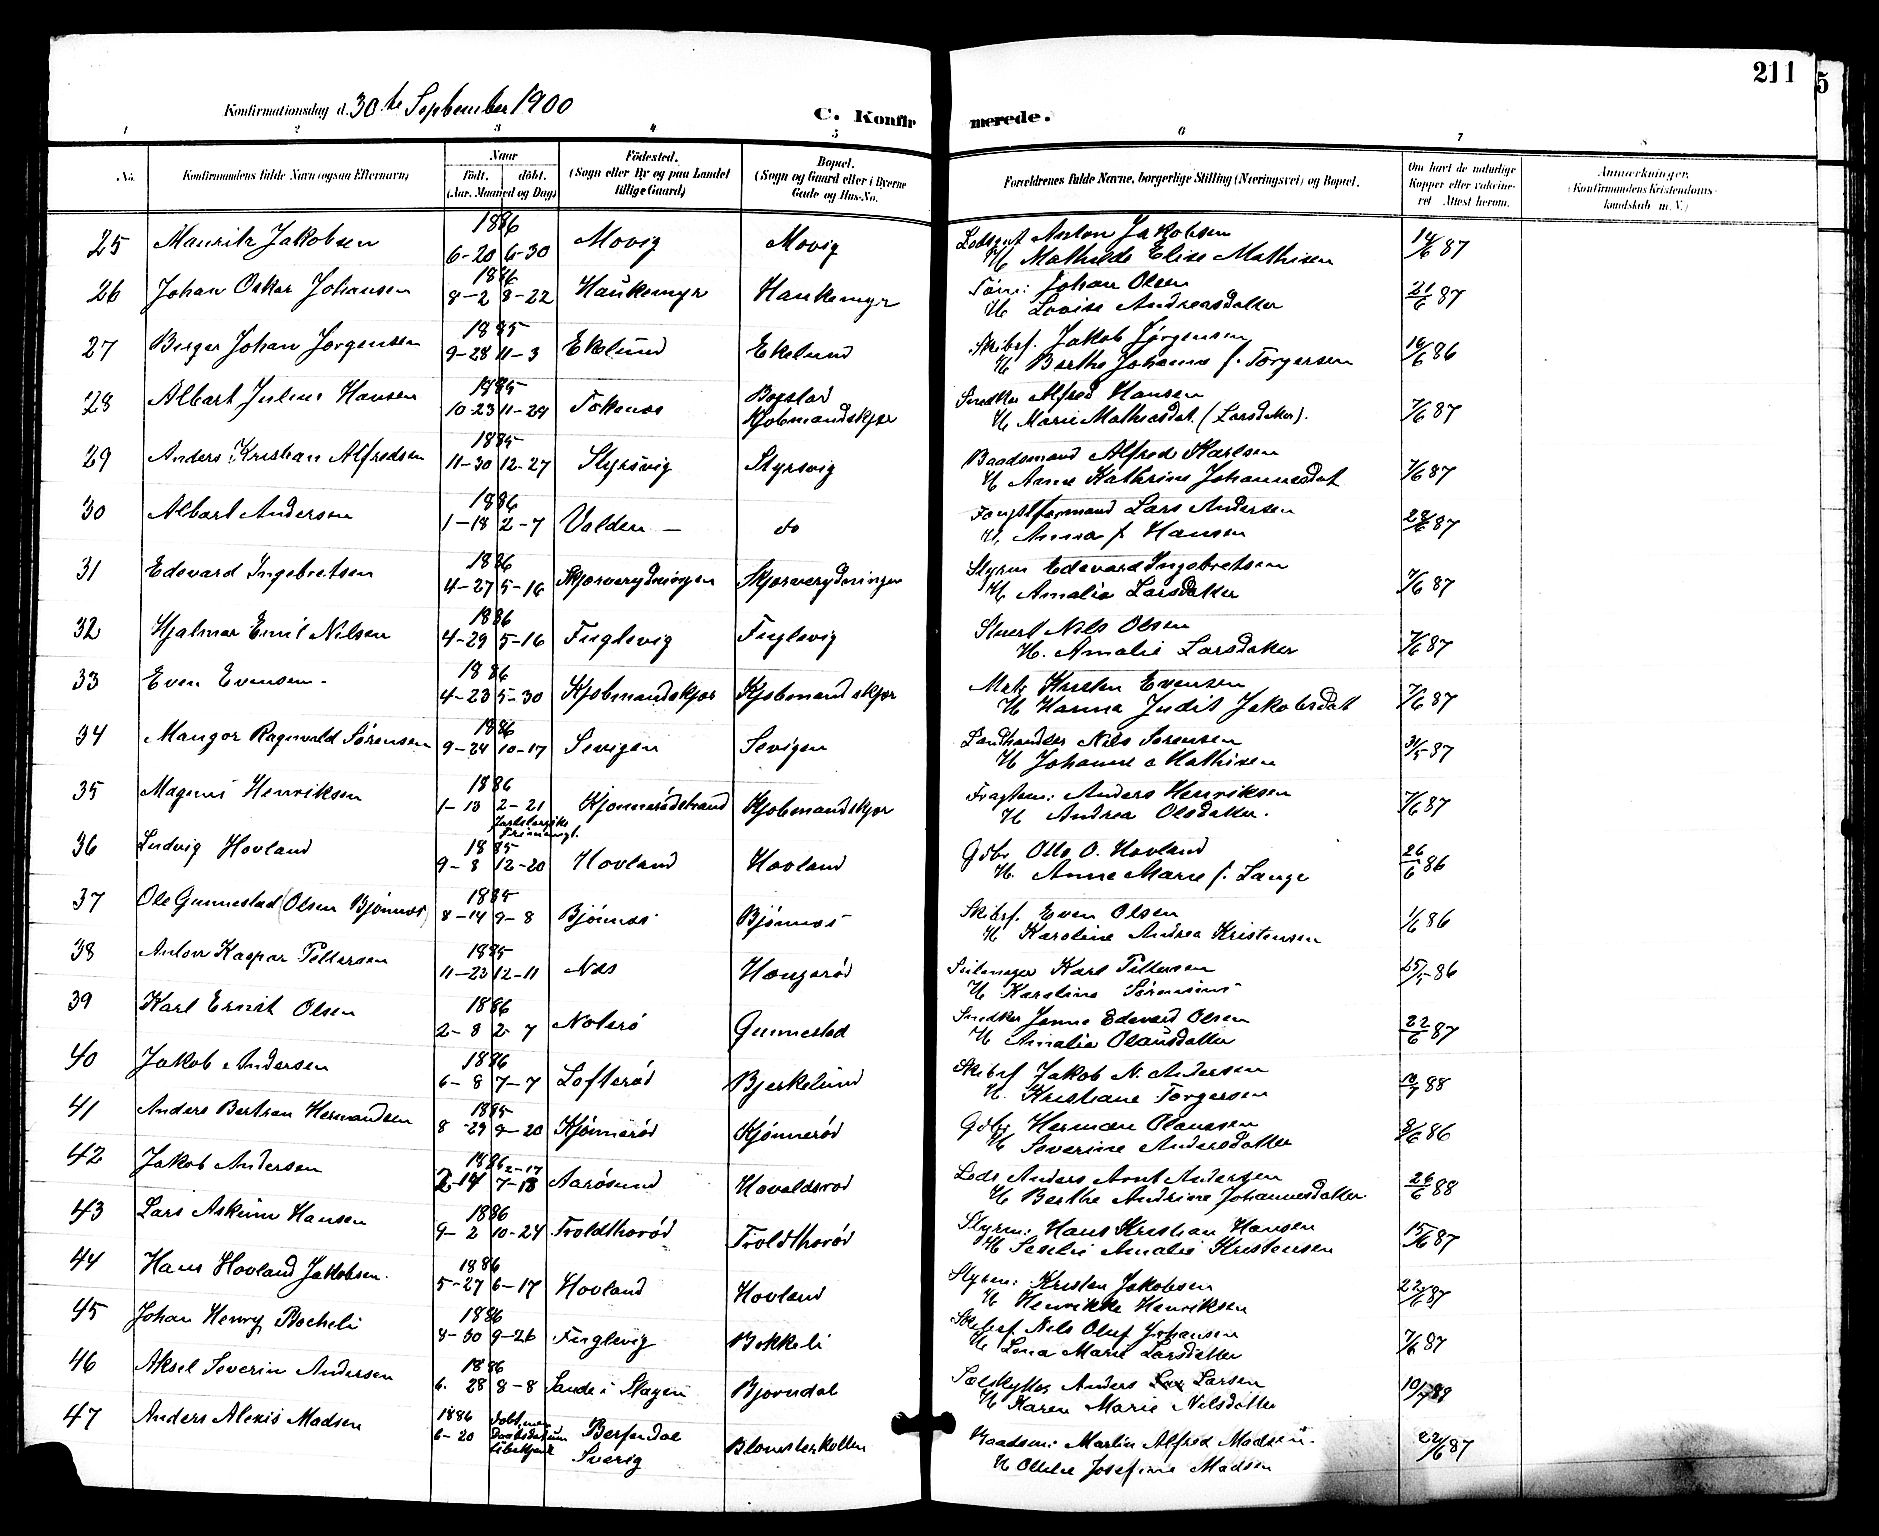 211
5
Konfirmationsdag d. 30te September 1900
C. Konfir merede.
1 2 3 4 5 6 7 8
No.
Konfirmandens fulde Navn (ogsaa Efternavn)
Naar
født. døbt.
(Aar, Maaned og Dag)
Fødested.
(Sogn eller By og paa Landet
tillige Gaard)
Bopæl.
(Sogn og Gaard eller i Byerne
Gade og Hus-No.
Forældrenes fulde Navne, borgerlige Stilling (Næringsvei) og Bopæl.
Om havt de naturlige
Kopper eller vakcine-
ret Attest herom.
Anmærkninger.
(Konfirmandens Kristendoms-
kundskab m. V.)
25 Mauritz Jakobsen 1886 6-20 6-30 Movig Movig Anton Jakobsen
H. Mathilde Elise Mathisen 14/6 87
26 Johan Oskar Johansen 1886 8-2 8-22 Haukemyr Haukemyr Tørm: Johan Olsen
H Lovise Andreasdatter 21/6 87
27 Berger Johan Jørgensen 1885 9-28 11-3 Ekelund Ekelund Skibsf. Jakob Jørgensen
H Berthe Johanne f. Torgersen 16/6 86
28 Albert Julius Hansen 1885 10-23 11-29 Tokenes Kjøbmandskjær Snedker Alfred Hansen
H Marie Mathiasdat. (Larsdatter). 7/6 87
29 Anders Kristian Alfredsen 1885 11-30 12-27 Styrsvig Styrsvig Baadsmand Alfred Karlsen
H Anne Kathrine Johannesdat 7/6 87
30 Albart Andersen 1886 1-18 2-7 Valden — do Lars Andersen
H. Anna f Hansen 28/6 87
31 Edevard Ingebretsen 1886 4-27 5-16 Skjærverydningen Skjærverydningen Styrm Edevard Ingebretsen
H Amalie Larsdatter 7/6 87
32 Hjalmar Emil Nilsen 1886 4-29 5-16 Fuglevig Fuglevig Stuert Nils Olsen
H. Amalie Larsdatter 7/6 87
33 Even Evensen 1886 4-23 5-30 Kjøbmandskjær Kjøbmandskjær Matr Kristen Evensen
H Hanna Judit Jakobsdat 7/6 87
34 Mangor Ragnvald Sørensen 1886 9-24 10-17 Sevigen Sevigen Landhandler Nils Sørensen
H Johanne Mathisen 31/5 87
35 Magnus Henriksen 1886 1-13 2-21 Jarlsbergske Frimenigt. Kjønnerødstrand Kjøbmandskjær Fragtem: Anders Henriksen
H Andrea Olsdatter. 7/6 87
36 Ludvig Hovland 1885 9-8 12-20 Hovland Hovland Gdbr Otto O. Hovland
H. Anne Marie f. Lange 26/6 86
37 Ole Gunnestad (Olsen Bjønnes) 1885 8-14 9-8 Bjønnes Bjønnes Skibsf. Even Olsen
H Karoline Andrea Kristensen 1/6 86
38 Anton Kaspar Pettersen 1885 11-23 12-11 Næs Haugerød Seilmager Karl Pettersen
H Karoline 25/5 86
39 Karl Ernst Olsen 1886 2-8 2-7 Noterø Gunnestad Snedker Edevard Olsen
H Amalie Olausdatter 22/6 87
40 Jakob Andersen 1886 6-8 7-7 Lofterød Bjerkelund Skibsf Jakob N. Andersen
H. Kristiane Torgersen 88
41 Anders Bertran Hermandsen 1885 8-29 9-20 Kjønnerød Kjønnerød Gdbr Herman Olaussen
H Severine Andersdatter 9/6 86
42 Jakob Andersen 1886 2-14 2-17 7-18 Aarøsund Havoldsrød Lods Anders Arnt Andersen
H Berthe Andrine Johannesdatter 26/6 88
43 Lars Askim Hansen 1886 9-2 10-24 Troldthorød Troldthorød Styrm: Hans Kristian Hansen
H Amalie Kristensen 15/6 87
44 Hans Hovland Jakobsen. 1886 5-27 6-17 Hovland Hovland Styrm: Kristen Jakobsen
H Henrikke Henriksen 22/6 87
45 Johan Henry Bocheli 1886 8-30 9-26 Fuglevig Bekkeli Skibsf Nils Oluf Johansen
H. Lena Marie Larsdatter 7/6 87
46 Aksel Severin Andersen 1886 6-28 8-8 Sande i Slagen Bjørndal Anders Larsen
H Karen Marie Nilsdatter 10/7 89
47 Anders Alexis Madsen 1886 6-20 døbt men Daabsdatum Berfendal Sverig Blomsterkollen Baadsm: Martin Alfred Madsen.
H Josefine Madsen 22/6 87